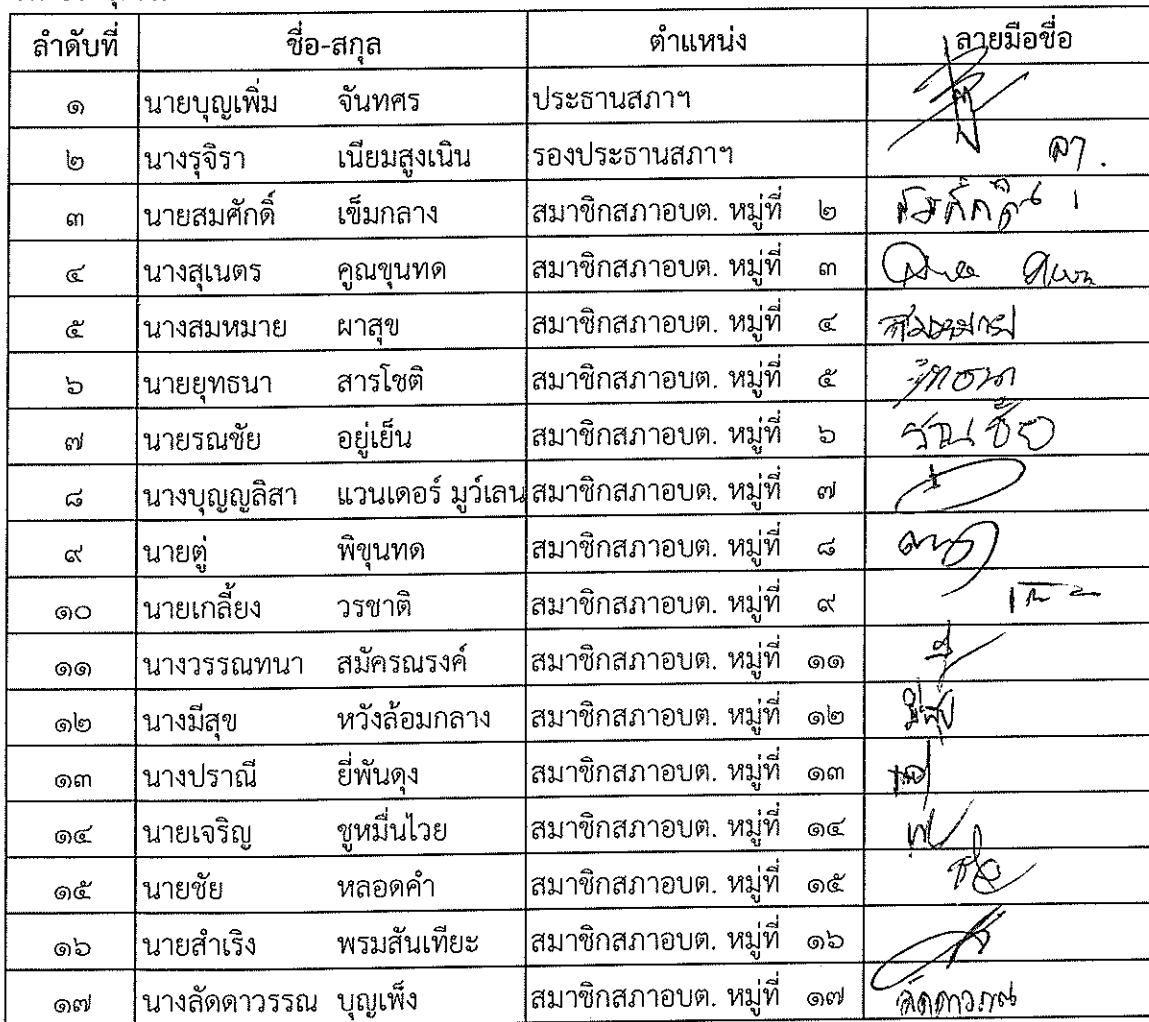 ลำดับที่ ชื่อ-สกุล ตำแหน่ง ลายมือชื่อ
๑ นายบุญเพิ่ม จันทศร ประธานสภาฯ
๒ นางรุจิรา เนียมสูงเนิน รองประธานสภาฯ
๓ นายสมศักดิ์ เข็มกลาง สมาชิกสภาอบต. หมู่ที่ ๒
๔ นางสุเนตร คูณขุนทด สมาชิกสภาอบต. หมู่ที่ ๓
๕ นางสมหมาย ผาสุข สมาชิกสภาอบต. หมู่ที่ ๔ สมหมาย
๖ นายยุทธนา สารโชติ สมาชิกสภาอบต. หมู่ที่ ๕
๗ นายรณชัย อยู่เย็น สมาชิกสภาอบต. หมู่ที่ ๖ รณชัย
๘ นางบุญญลิสา แวนเดอร์ มูว์เลน สมาชิกสภาอบต. หมู่ที่ ๗
๙ นายตู่ พิขุนทด สมาชิกสภาอบต. หมู่ที่ ๘
๑๐ นายเกลี้ยง วรชาติ สมาชิกสภาอบต. หมู่ที่ ๙
๑๑ นางวรรณทนา สมัครณรงค์ สมาชิกสภาอบต. หมู่ที่ ๑๑
๑๒ นางมีสุข หวังล้อมกลาง สมาชิกสภาอบต. หมู่ที่ ๑๒
๑๓ นางปราณี ยี่พันดุง สมาชิกสภาอบต. หมู่ที่ ๑๓
๑๔ นายเจริญ ชูหมื่นไวย สมาชิกสภาอบต. หมู่ที่ ๑๔
๑๕ นายชัย หลอดคำ สมาชิกสภาอบต. หมู่ที่ ๑๕
๑๖ นายสำเริง พรมสันเทียะ สมาชิกสภาอบต. หมู่ที่ ๑๖
๑๗ นางลัดดาวรรณ บุญเพ็ง สมาชิกสภาอบต. หมู่ที่ ๑๗ ลัดดาวรรณ